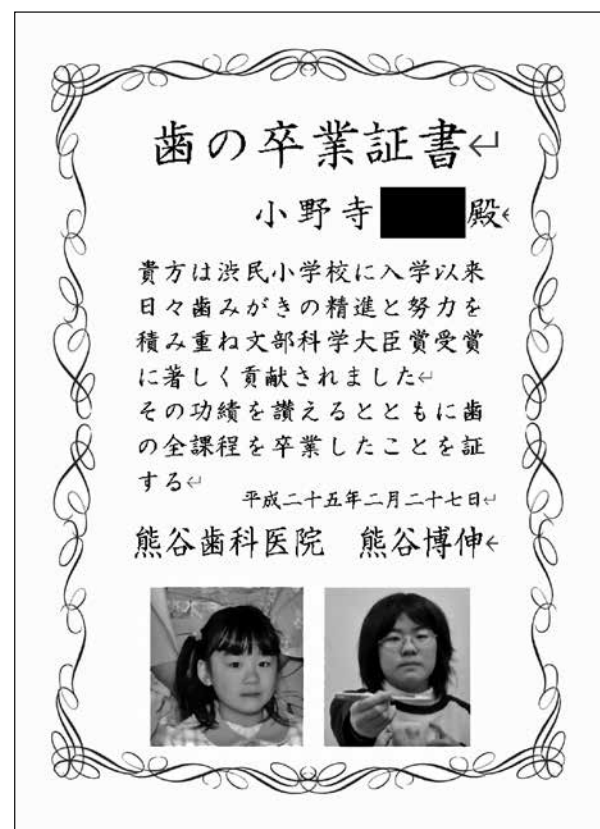 歯の卒業証書↵
小野寺 殿↵
貴方は渋民小学校に入学以来
日々歯みがきの精進と努力を
積み重ね文部科学大臣賞受賞
に著しく貢献されました↵
その功績を讃えるとともに歯
の全課程を卒業したことを証
する↵
平成二十五年二月二十七日↵
熊谷歯科医院　熊谷博伸↵